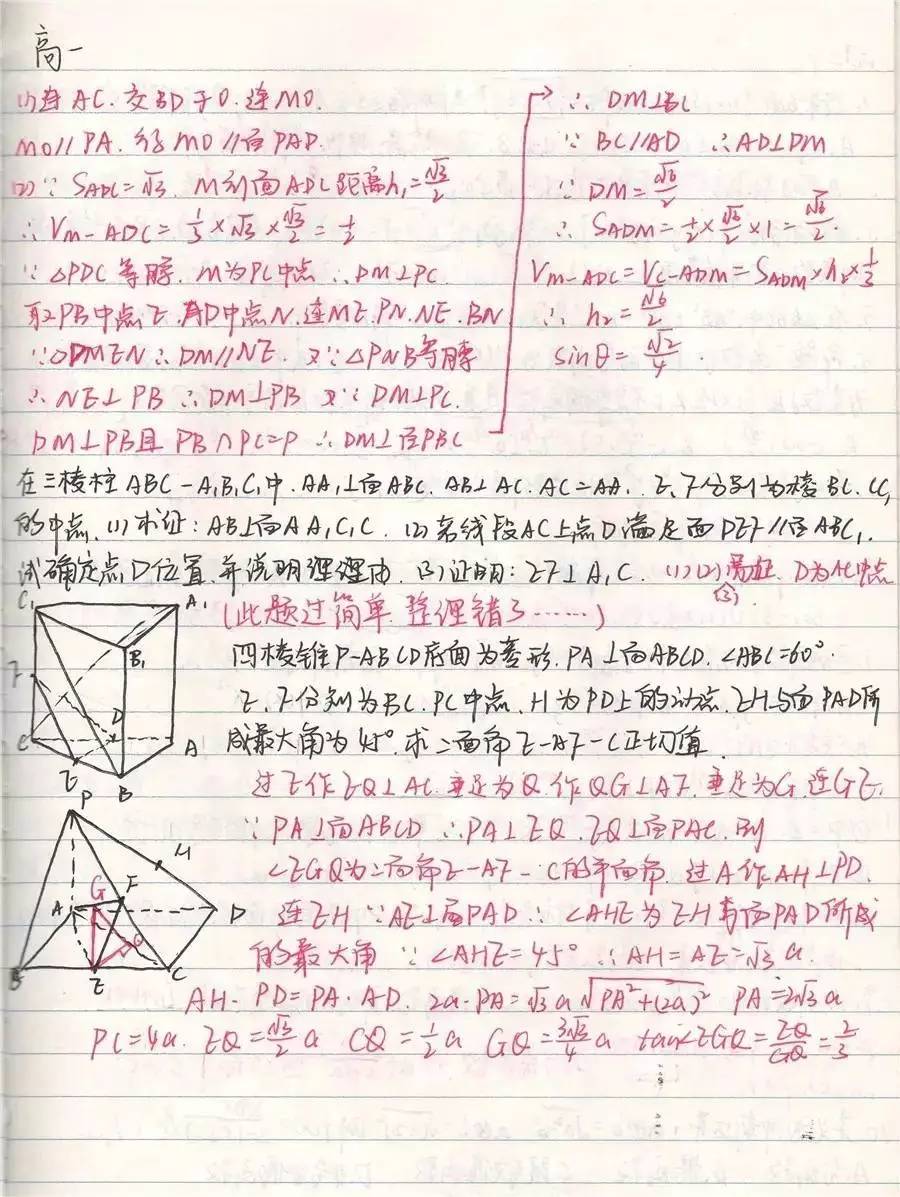 高一
(1)连AC.交BD于O.连MO.
MO∥PA.得MO∥面PAD.
(2)∵S_ADC=√3.M到面ADC距离h₁=√3/2
∴V_M-ADC=1/3×√3×√3/2=1/2
∵△PDC等腰.M为PC中点∴DM⊥PC.
取PB中点E.AD中点N.连ME.PN.NE.BN
∵▱DMEN∴DM∥NE.又∵△PNB等腰
∴NE⊥PB∴DM⊥PB 又∵DM⊥PC.
DM⊥PB且PB∩PC=P∴DM⊥面PBC
∴DM⊥BC
∵BC∥AD ∴AD⊥DM
∵DM=√6/2
∴S_ADM=1/2×√6/2×1=√6/2.
V_M-ADC=V_C-ADM=S_ADM×h₂×1/3
∴h₂=√6/2
sinθ=√2/4.
在三棱柱ABC-A₁B₁C₁中.AA₁⊥面ABC.AB⊥AC.AC=AA₁.E、F分别为棱BC.CC₁
的中点.(1)求证:AB⊥面AA₁C₁C.(2)若线段AC上点D满足面DEF∥面ABC₁.
试确定点D位置.并说明理理由.(3)证明:EF⊥A₁C.(1)(2)易证.D为AC中点
(3)
(此题过简单.整理错了……)
四棱锥P-ABCD底面为菱形.PA⊥面ABCD.∠ABC=60°.
E、F分别为BC.PC中点.H为PD上的动点.EH与面PAD所
成最大角为45°.求二面角E-AF-C正切值.
过E作EQ⊥AC.垂足为Q.作QG⊥AF.垂足为G.连GE.
∵PA⊥面ABCD ∴PA⊥EQ.EQ⊥面PAC.则
∠EGQ为二面角E-AF-C的平面角.过A作AH⊥PD.
连EH∵AE⊥面PAD∴∠AHE为EH与面PAD所成
的最大角∵∠AHE=45°∴AH=AE=√3a.
AH·PD=PA·AD.2a·PA=√3a√PA²+(2a)² PA=2√3a
PC=4a.EQ=√3/2a CQ=1/2a GQ=3√3/4a tan∠EGQ=EQ/GQ=2/3
C₁ A₁
B₁
F
D
C A
E B
P
H
G F
A D
Q
B E C